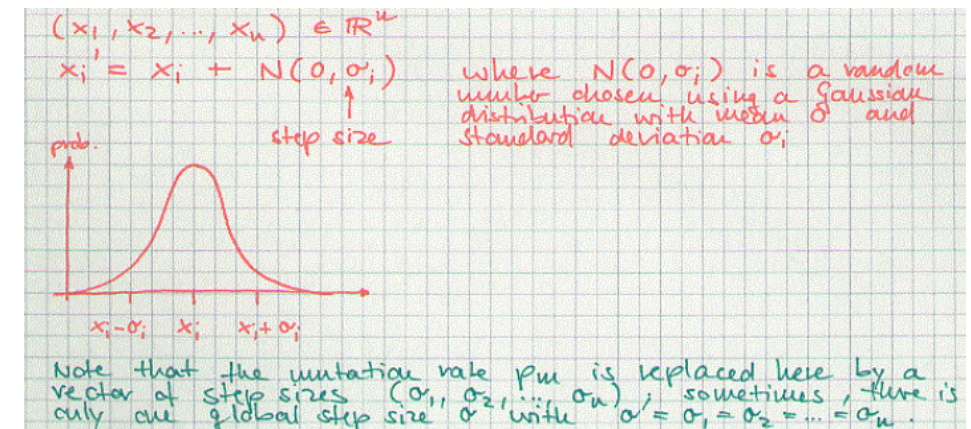 (x₁, x₂, ..., xₙ) ∈ ℝⁿ
xᵢ' = xᵢ + N(0, σᵢ) where N(0, σᵢ) is a random
number chosen using a Gaussian
distribution with mean 0 and
step size standard deviation σᵢ
prob.
xᵢ-σᵢ xᵢ xᵢ+σᵢ
Note that the mutation rate pm is replaced here by a
vector of step sizes (σ₁, σ₂, ..., σₙ); sometimes, there is
only one global step size σ with σ = σ₁ = σ₂ = ... = σₙ.